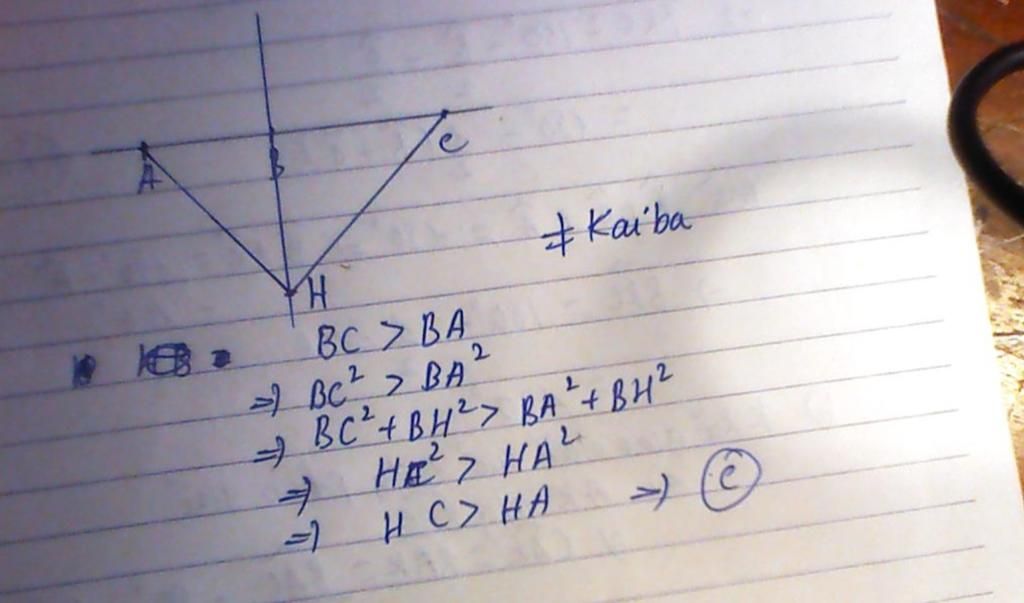 A B C
H
≠ Kaiba
BC > BA
⇒ BC² > BA²
⇒ BC² + BH² > BA² + BH²
⇒ HC² > HA²
⇒ HC > HA ⇒ C